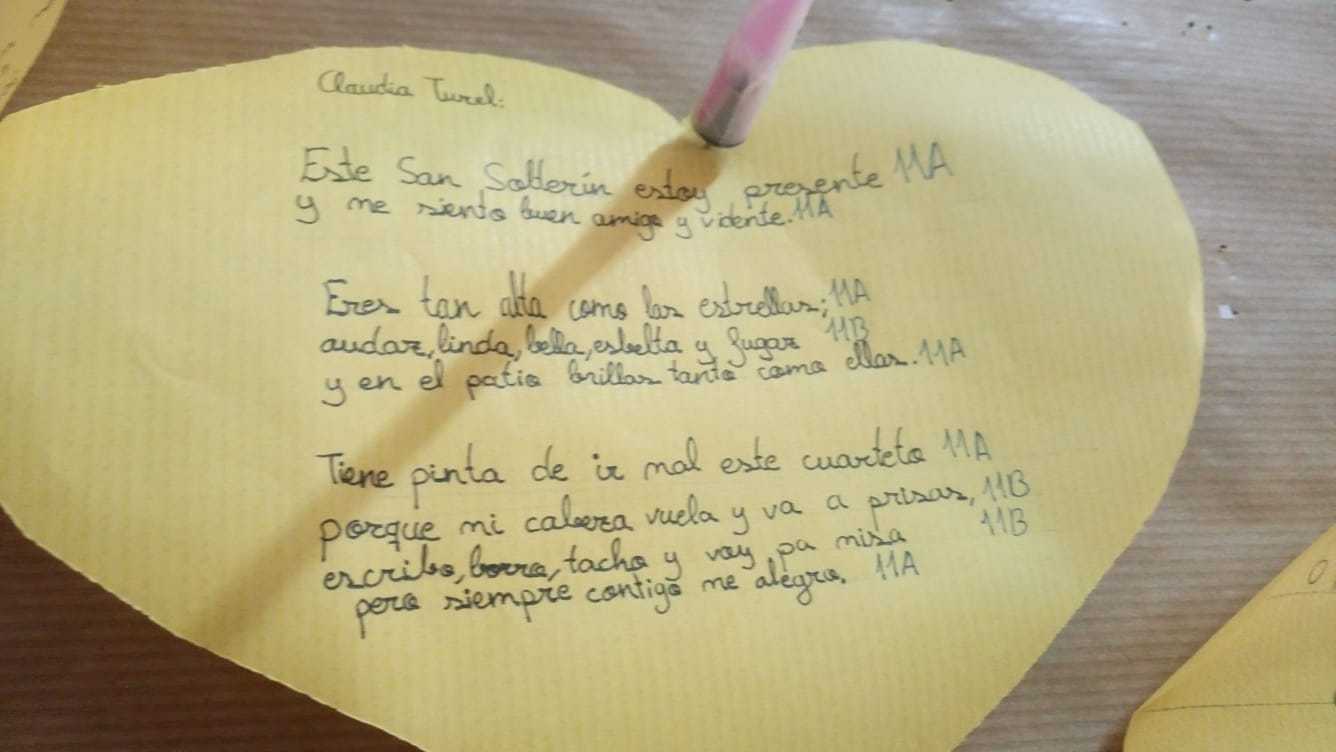 Claudia Turel:
Este San Solterín estoy presente 11A
y me siento buen amigo y vidente. 11A
Eres tan alta como las estrellas; 11A
audaz, linda, bella, esbelta y fugaz 11B
y en el patio brillas tanto como ellas. 11A
Tiene pinta de ir mal este cuarteto 11A
porque mi cabeza vuela y va a prisas, 11B
escribo, borro, tacho y voy pa misa 11B
pero siempre contigo me alegro. 11A